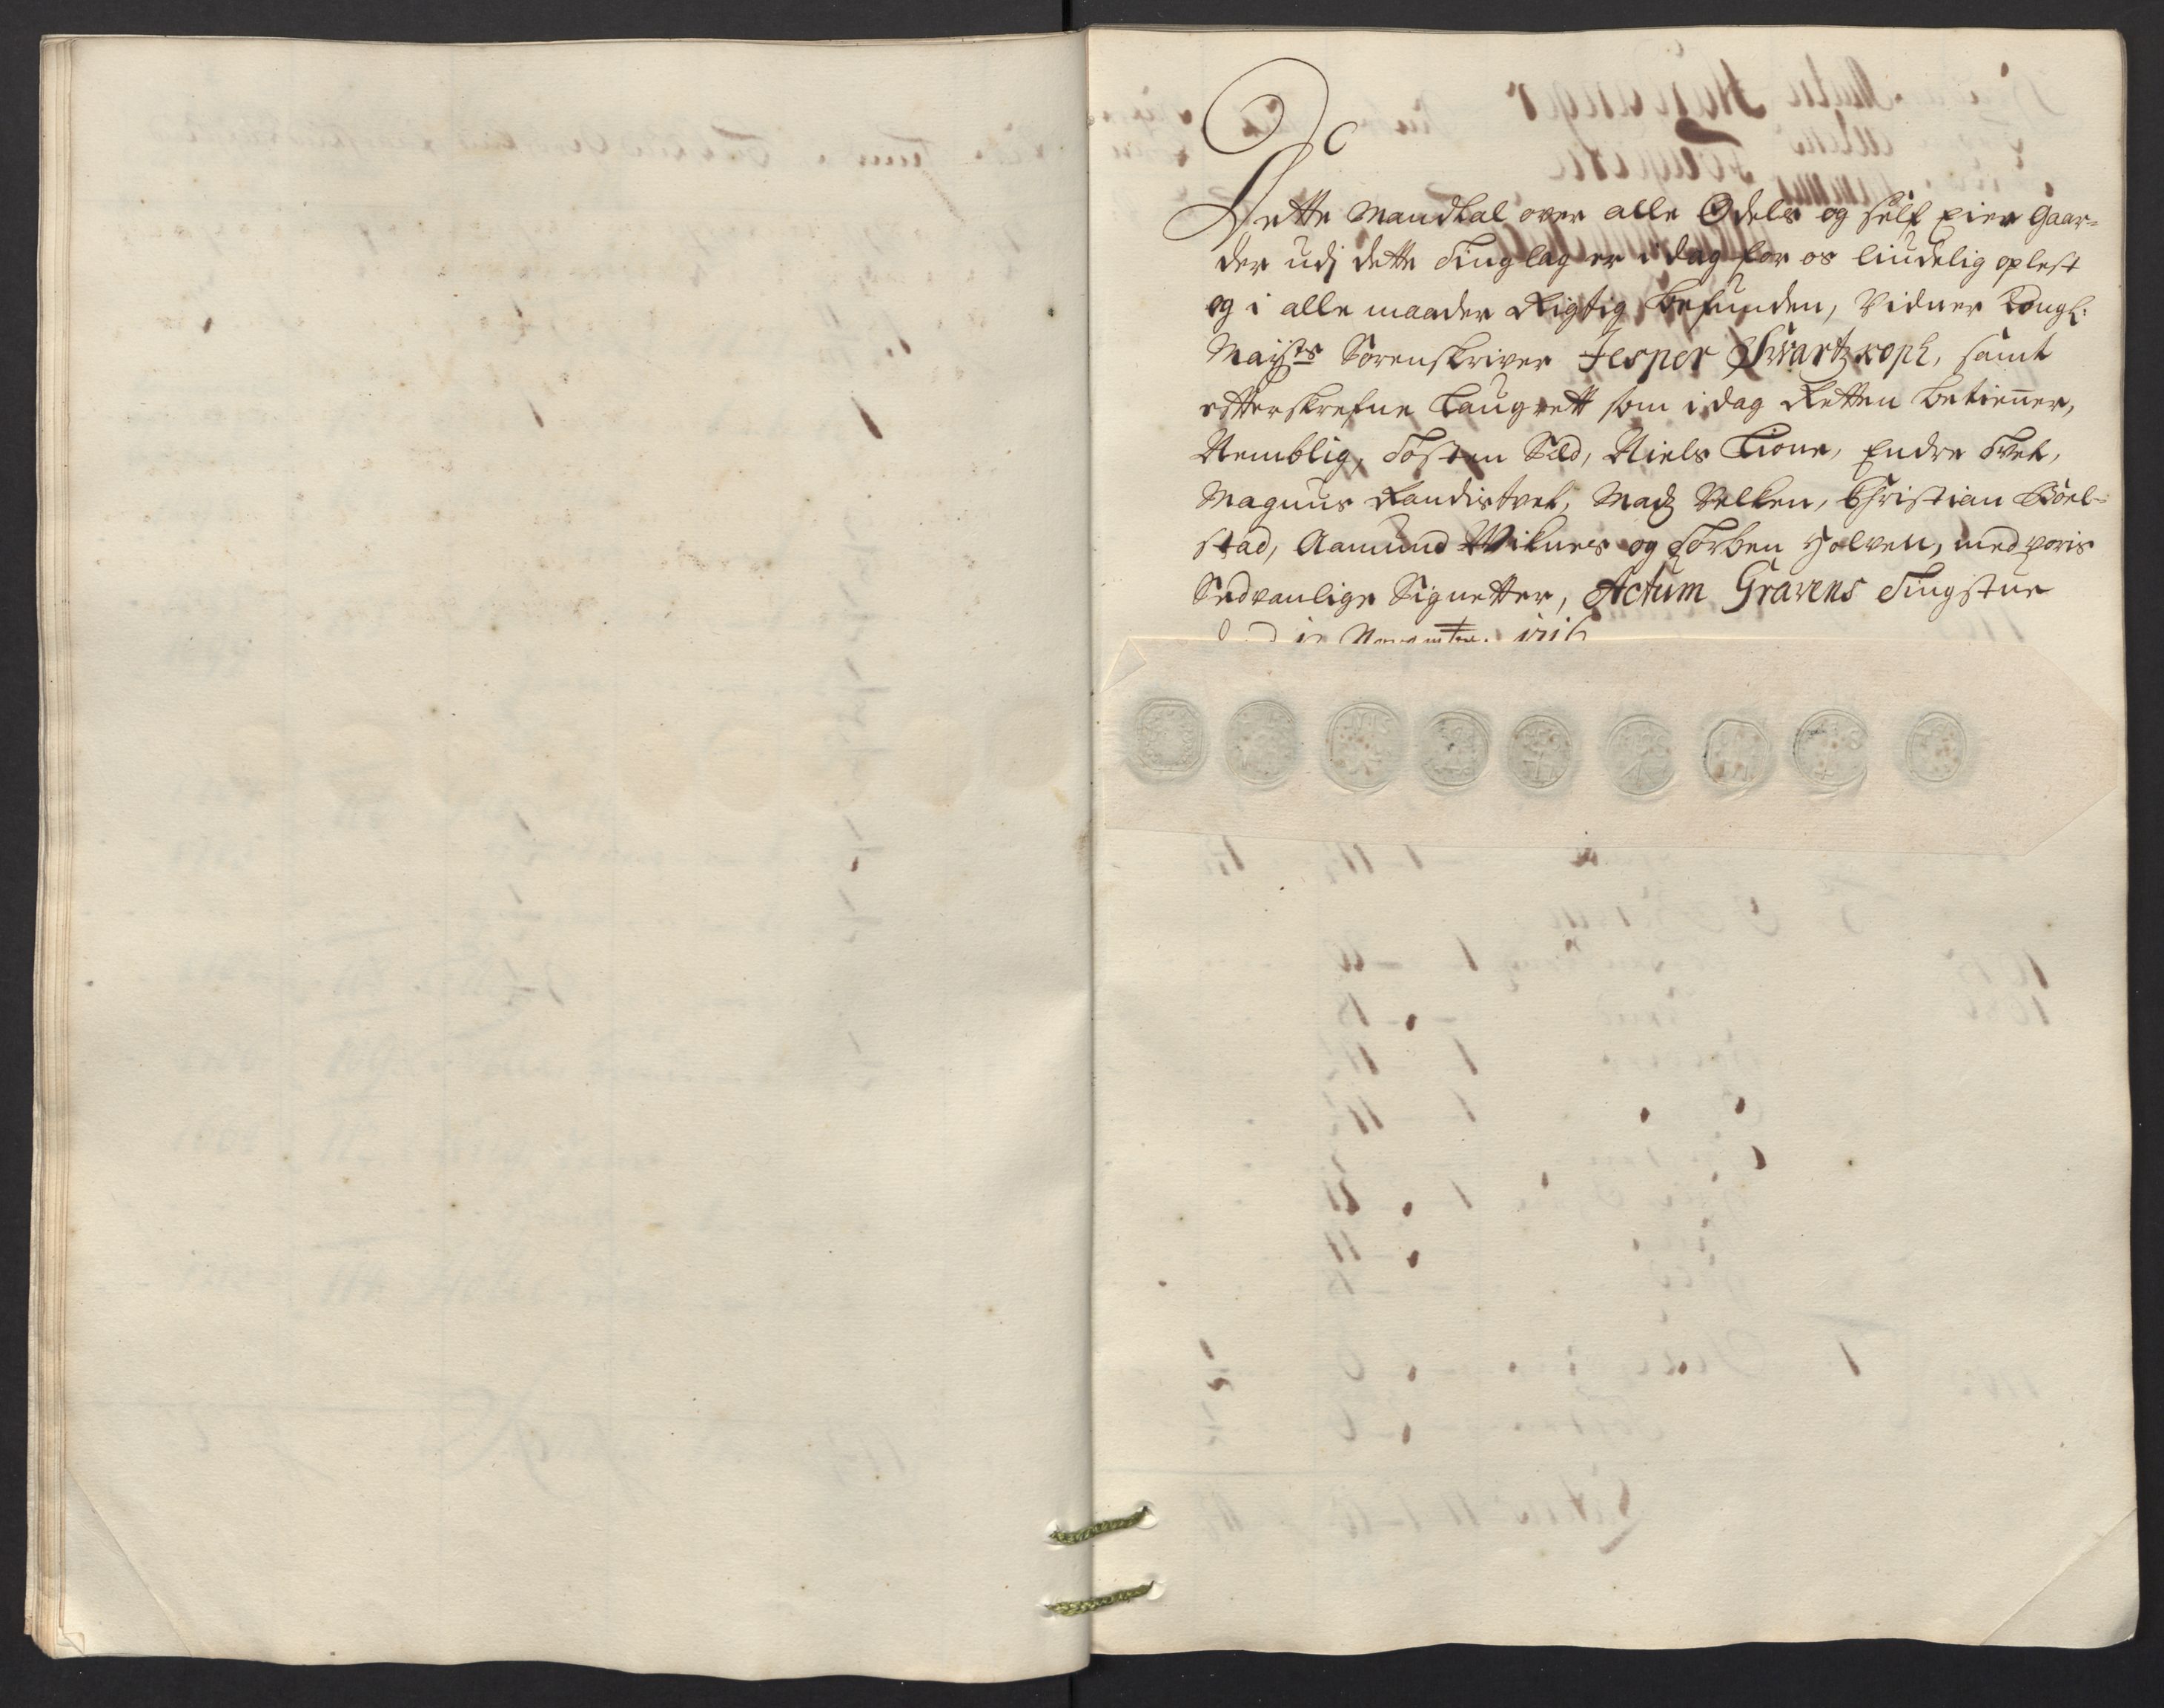 Dette Mandtal over alle Odels og self Eier Gaar=
der udj dette Tinglag er i dag for os liudelig oplest
og i alle maader Rigtig befunden, Vidner Kongl:
Mayts Sorenskriver Jesper Swartzkoph, samt
efterskrefne Laugrett som i dag Retten betienner,
Nemblig, Tosten Sæd, Niels Lione, Endre Tvet,
Magnus Randistvet, Madz Velken, Christian Koel=
stad, Aamund Wiknes og Torben Holven, med voris
Sedvanlige Signetter, Actum Gravens Tingstue
November. 1716